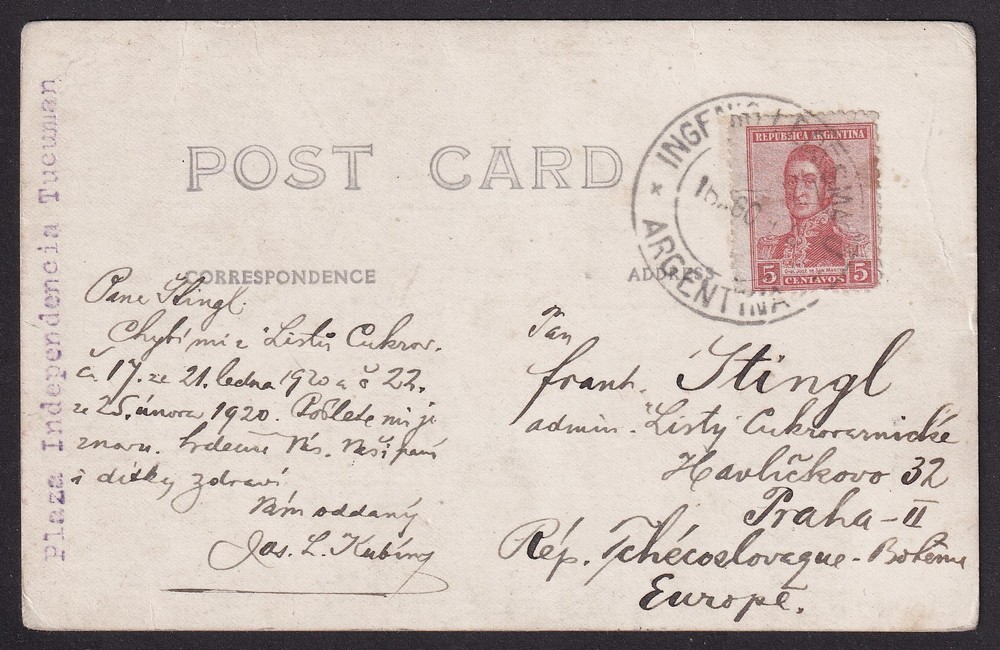 Plaza Independencia Tucuman
POST CARD
CORRESPONDENCE
ADDRESS
ARGENTINA
REPUBLICA ARGENTINA
5 CENTAVOS 5
Pane Stingl.
Chybí mi z "Listů Cukrov.
č. 17. ze 21. ledna 1920 a č 22.
ze 25. února 1920. Pošlete mi je
znovu. Srdečně Vás, Vaši paní
i dítky zdraví
Vám oddaný
Jos. L. Kubíny
Pan
frant. Stingl
admin. "Listy Cukrovarnické
Havlíčkovo 32
Praha-II
Rép. Tchécoslovaque - Bohême
Europe.